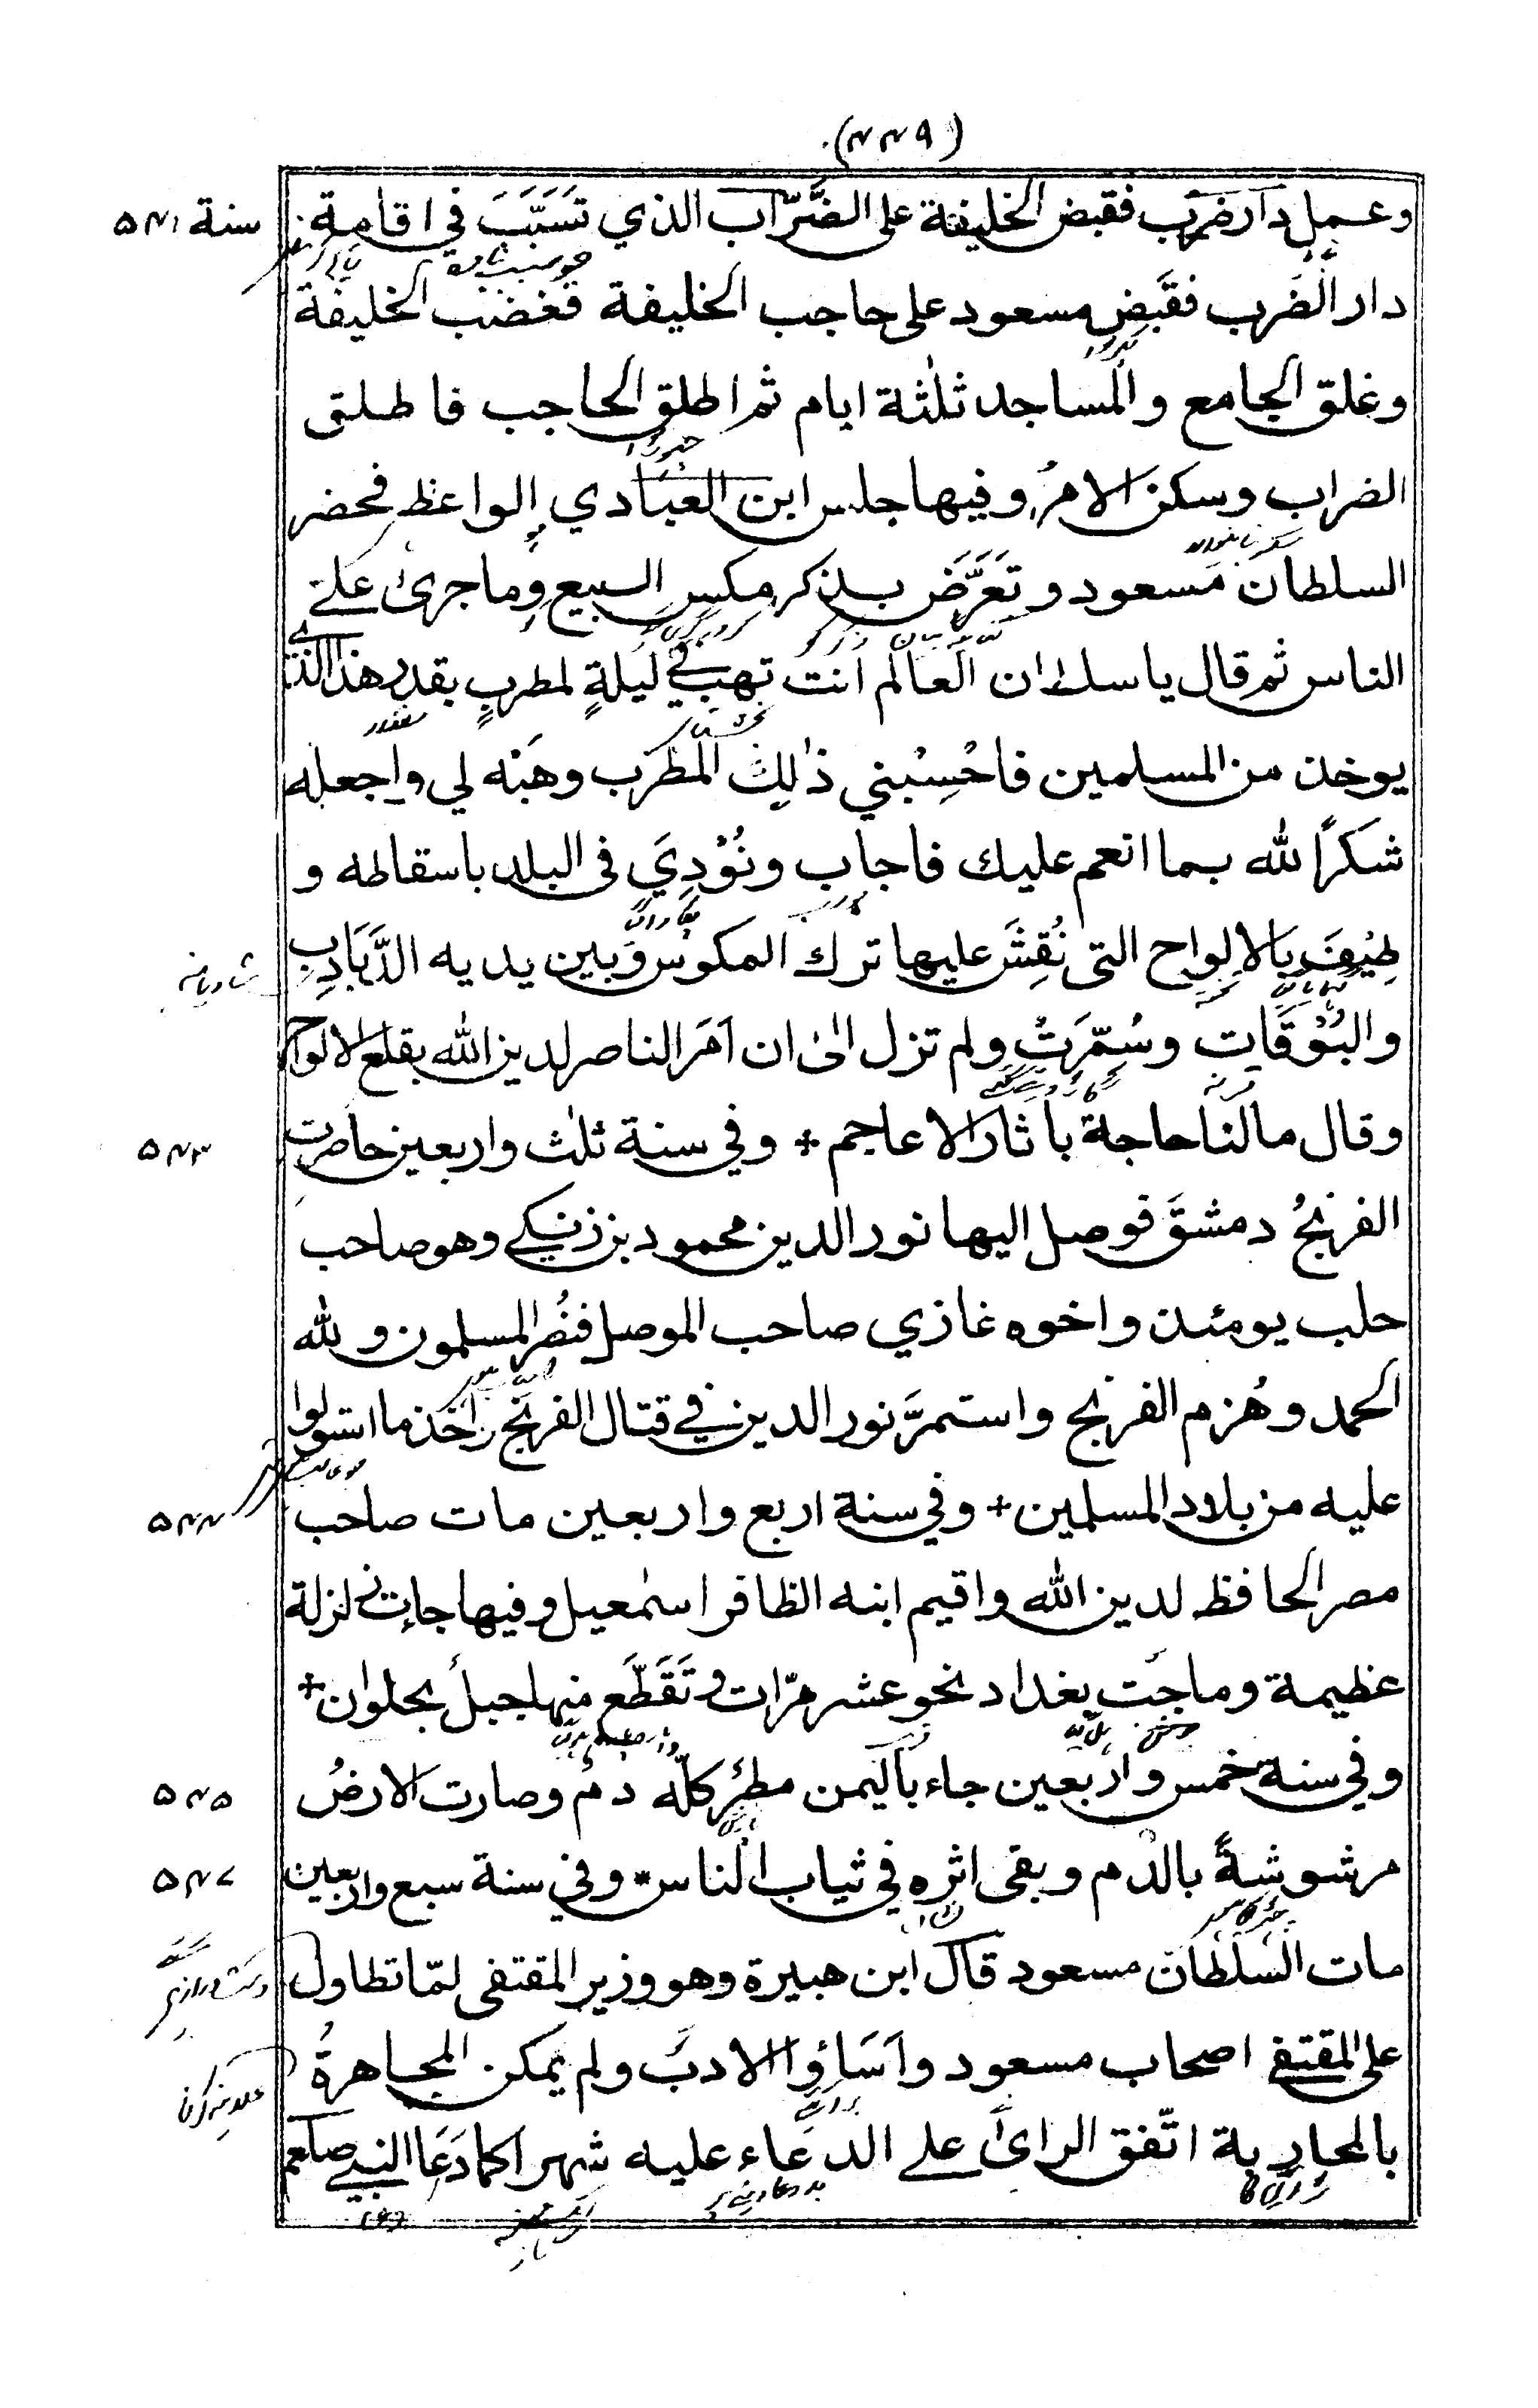 (۴۴۹)
وعمل دار ضرب فقبض الخليفة على الضَّرّاب الذي تَسَبَّبَ في اقامة
سنة ۵۴۱
دار الضرب فقَبض مسعود على حاجب الخليفة فغضب الخليفة
وغلق الجامع والمساجد ثلٰثة ايام ثم اطلق الحاجب فاطلق
الضراب وسكن الامرُ وفيها جلس ابن العبادي الواعظ فحضر
السلطان مسعود وتَعَرَّضَ بذكر مكس البيع وما جرىٰ على
الناس ثم قال يا سلطان العالم انت تهب في ليلةٍ لمطربٍ بقدر هذا الذي
يوخذ من المسلمين فاحْسِبْني ذٰلِكَ المطرب وهَبْه لي واجعله
شكرًا لله بما انعم عليك فاجاب ونُوْدِيَ في البلد باسقاطه و
طِيْفَ بالالواح التي نُقِشَ عليها ترك المكوس وبين يديه الدَّبَادِبِ
والبُوْقَاتِ وسُمِّرَتْ ولم تزل الىٰ ان اَمَرَ الناصر لدين الله بقلع الالواح
وقال ما لنا حاجة باٰثار الاعاجم + وفي سنة ثلٰث واربعين حاصرت
۵۴۳
الفرنجُ دمشقَ فوصل اليها نور الدين محمود بن زنكي وهو صاحب
حلب يومئذ واخوه غازي صاحب الموصل فنُصر المسلمون ولله
الحمد وهُزم الفرنج واستمرَّ نور الدين في قتال الفرنج واخذ ما استولوا
عليه من بلاد المسلمين + وفي سنة اربع واربعين مات صاحب
۵۴۴
مصر الحافظ لدين الله واقيم ابنه الظافر اسمٰعيل وفيها جاءت زلزلة
عظيمة وماجَت بغداد نحو عشر مرّات وتَقَطَّعَ منها جبلٌ بحلوان +
وفي سنة خمس واربعين جاء باليمن مطرٌ كلّه دمٌ وصارت الارضُ
۵۴۵
مرشوشةً بالدم وبقى اثره في ثياب الناس * وفي سنة سبع واربعين
۵۴۷
مات السلطان مسعود قال ابن هبيرة وهو وزير المقتفى لمّا تطاول
على المقتفى اصحاب مسعود واَسَاؤا الادبَ ولم يمكن المجاهرةُ
بالمحاربة اتّفق الراىٔ على الدعاء عليه شهرا كما دَعَا النبي صلعم